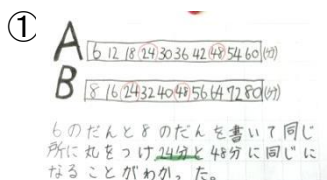 ①
A 6 12 18 24 30 36 42 48 54 60 (分)
B 8 16 24 32 40 48 56 64 72 80 (分)
6のだんと8のだんを書いて同じ
所に丸をつけ24分と48分に同じに
なることがわかった。